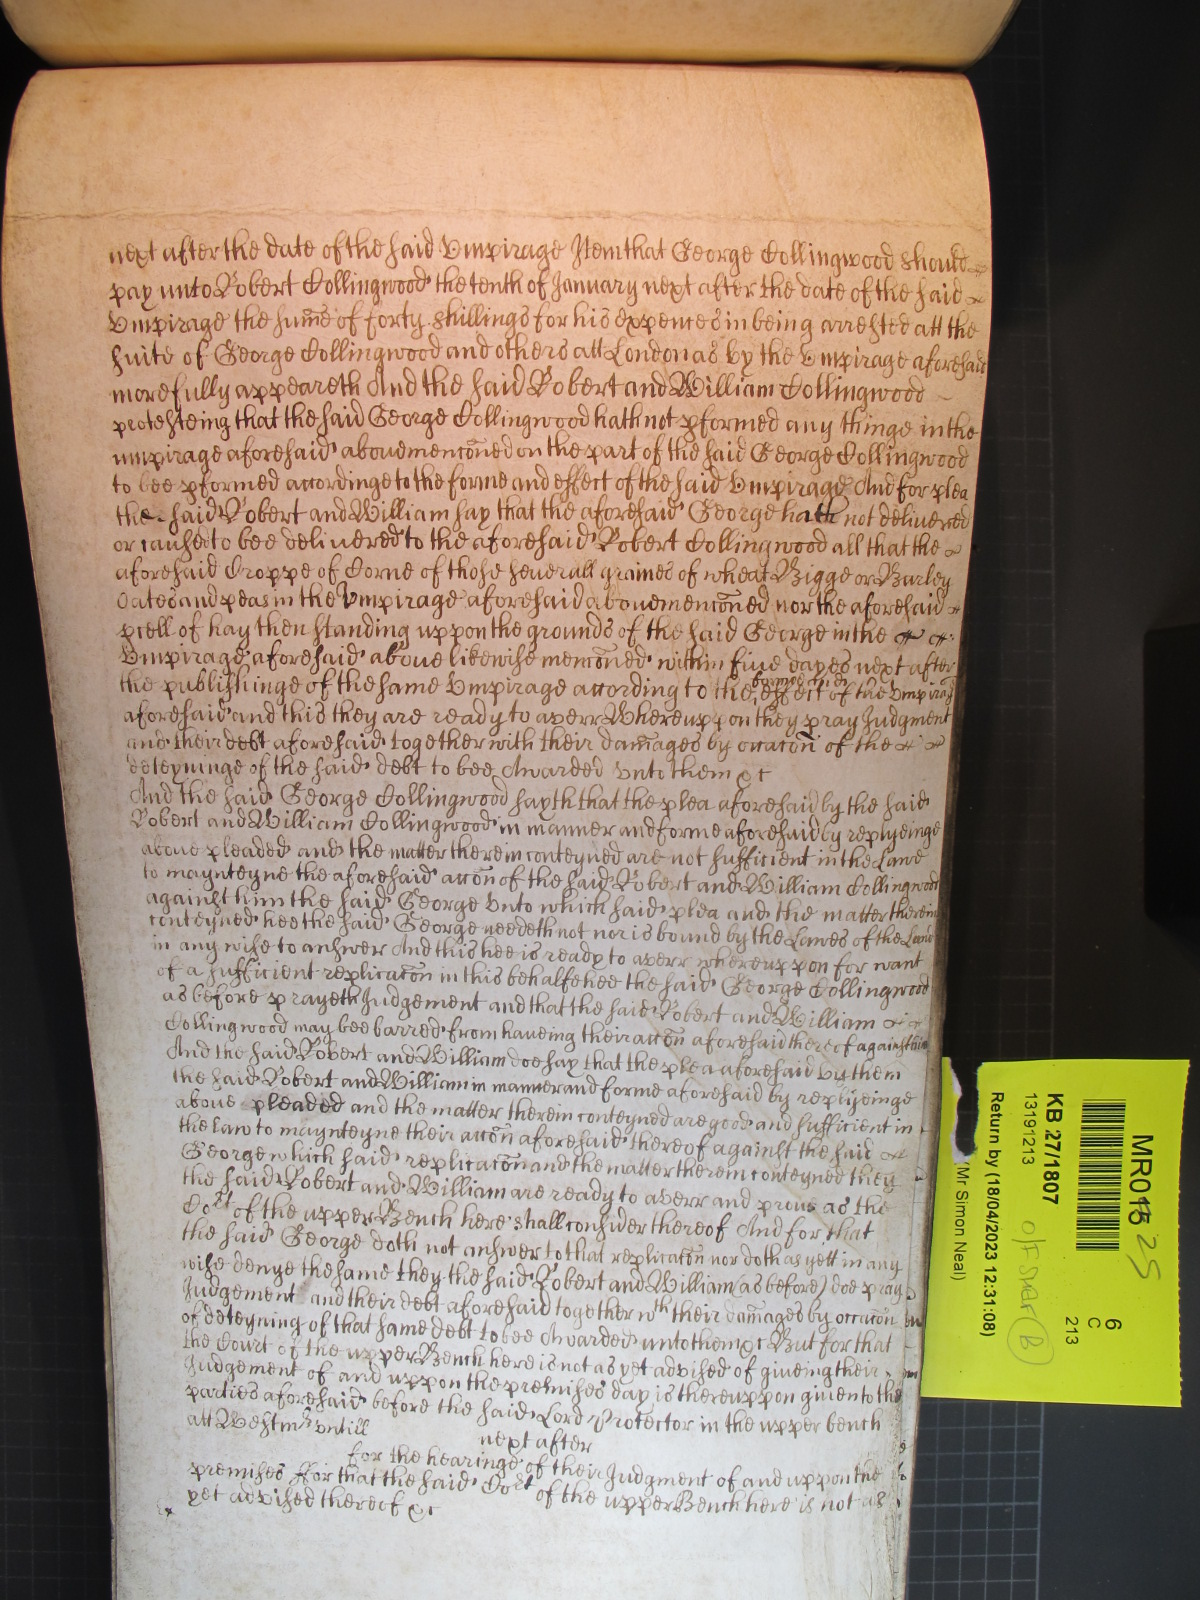 next after the date of the said Umpirage Item that George Collingwood should
pay unto Robert Collingwood the tenth of January next after the date of the said
Umpirage the sume of forty shillings for his expences in being arrested att the
suite of George Collingwood and others att London as by the Umpirage aforesaid
more fully appeareth And the said Robert and William Collingwood
protesteing that the said George Collingwood hath not pformed any thinge in the
umpirage aforesaid aboue menconed on the part of the said George Collingwood
to bee pformed accordinge to the forme and effect of the said Umpirage And for plea
the said Robert and William say that the aforesaid George hath not delivered
or caused to bee delivered to the aforesaid Robert Collingwood all that the
aforesaid Croppe of Corne of those severall graines of wheat Bigge or Barley
Oates and peas in the Umpirage aforesaid aboue menconed nor the aforesaid
pcell of hay then standing uppon the grounds of the said George in the
Umpirage aforesaid aboue likewise menconed within five dayes next after
the publishinge of the same Umpirage according to the forme and effect of the Umpirage
aforesaid and this they are ready to averr Whereuppon they pray Judgment
and their debt aforesaid together with their damages by occacon of the
deteyninge of the said debt to bee Awarded unto them &c
And the said George Collingwood sayth that the plea aforesaid by the said
Robert and William Collingwood in manner and forme aforesaid by replyeinge
aboue pleaded and the matter therein conteyned are not sufficient in the Lawe
to maynteyne the aforesaid accon of the said Robert and William Collingwood
against him the said George Unto which said plea and the matter therein
conteyned hee the said George needeth not nor is bound by the Lawes of the Land
in any wise to answer And this hee is ready to averr whereuppon for want
of a sufficient replicacon in this behalfe hee the said George Collingwood
as before prayeth Judgement and that the said Robert and William
Collingwood may bee barred from haueing their accon aforesaid thereof against him
And the said Robert and William doe say that the plea aforesaid by them
the said Robert and William in manner and forme aforesaid by replyeinge
aboue pleaded and the matter therein conteyned are good and sufficient in
the Law to maynteyne their accon aforesaid thereof against the said
George which said replicacon and the matter therein conteyned they
the said Robert and William are ready to averr and prove as the
Cort of the upper Bench here shall consider thereof And for that
the said George doth not answer to that replicacon nor doth as yett in any
wise denye the same they the said Robert and William (as before) doe pray
Judgement and their debt aforesaid together wth their damages by occacon
of deteyning of that same debt to bee Awarded unto them &c But for that
the Court of the upper Bench here is not as yet advised of giveing their
Judgement of and uppon the premises day is thereuppon given to the
parties aforesaid before the said Lord Protector in the upper bench
att Westmr untill next after
for the hearinge of their Judgment of and uppon the
premises for that the said Cort of the upper Bench here is not as
yet advised thereof &c
MR015 25
6
C
213
KB 27/1807
13191213
Return by (18/04/2023 12:31:08)
(Mr Simon Neal)